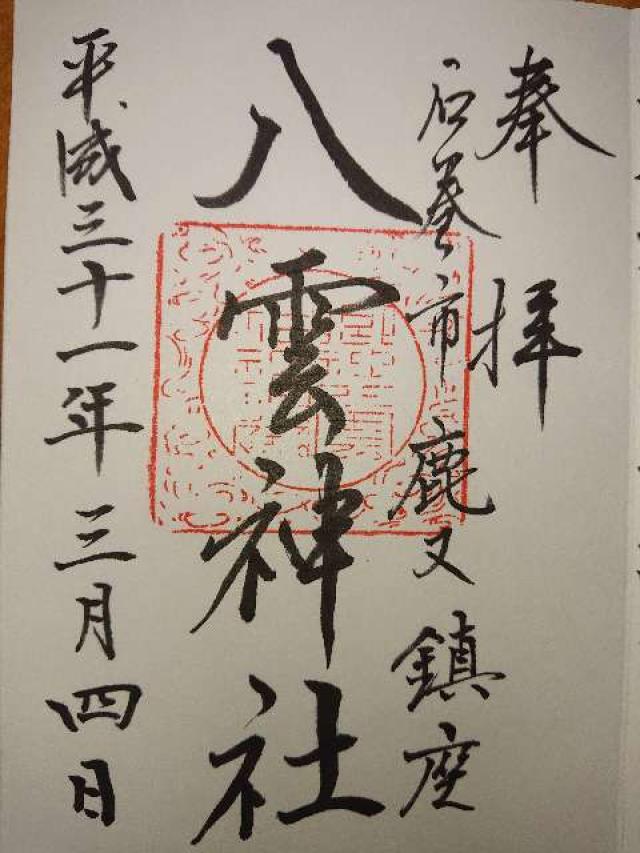 奉拝
石巻市鹿又鎮座
八雲神社
平成三十一年三月四日